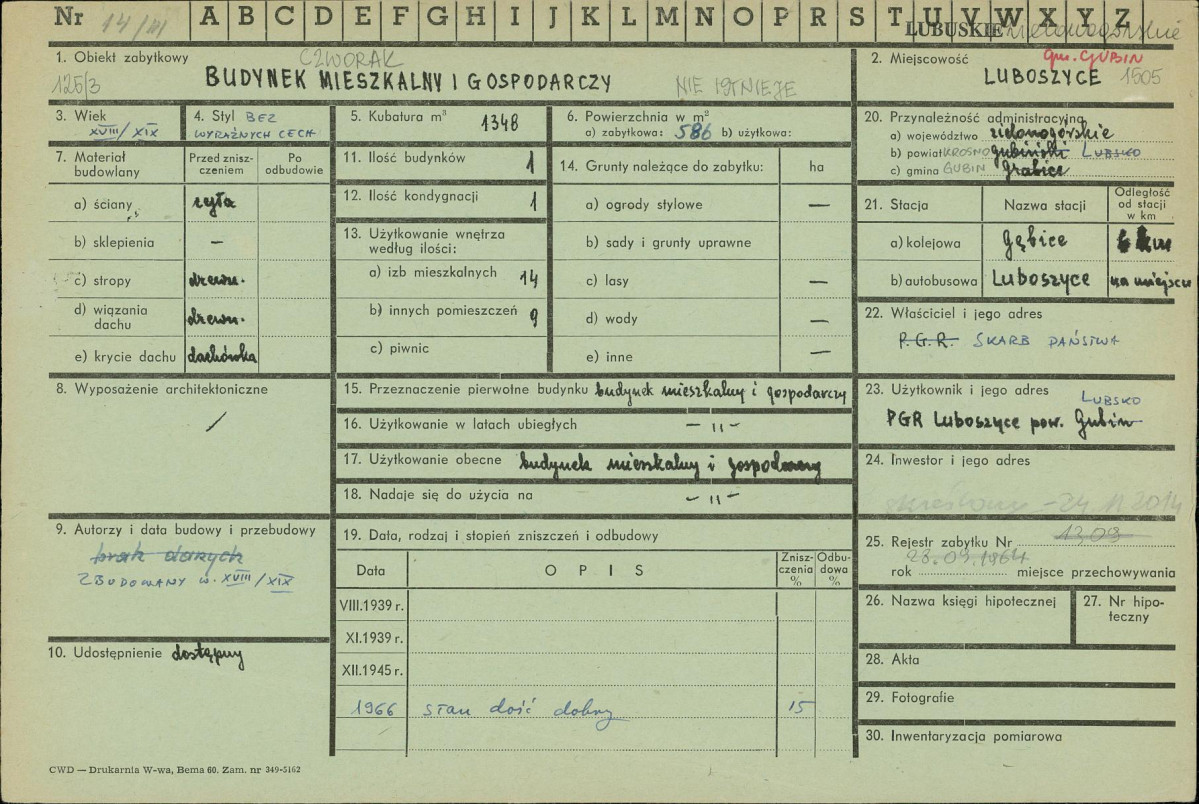 Nr 14/III A B C D E F G H I J K L M N O P R S T U V W X Y Z
LUBUSKIE zielonogórskie
1. Obiekt zabytkowy CZWORAK
125/3 BUDYNEK MIESZKALNY I GOSPODARCZY NIE ISTNIEJE
2. Miejscowość gm. GUBIN
LUBOSZYCE 1505
3. Wiek
XVIII/XIX
4. Styl BEZ
WYRAŹNYCH CECH
5. Kubatura m³ 1348
6. Powierzchnia w m²
a) zabytkowa: 586 b) użytkowa:
7. Materiał budowlany
Przed zniszczeniem
Po odbudowie
a) ściany cegła
b) sklepienia —
c) stropy drewn.
d) wiązania dachu drewn.
e) krycie dachu dachówka
8. Wyposażenie architektoniczne
/
9. Autorzy i data budowy i przebudowy
brak danych
ZBUDOWANY W. XVIII/XIX
10. Udostępnienie dostępny
11. Ilość budynków 1
12. Ilość kondygnacji 1
13. Użytkowanie wnętrza
według ilości:
a) izb mieszkalnych 14
b) innych pomieszczeń 9
c) piwnic
14. Grunty należące do zabytku: ha
a) ogrody stylowe —
b) sady i grunty uprawne
c) lasy —
d) wody —
e) inne —
15. Przeznaczenie pierwotne budynku budynek mieszkalny i gospodarczy
16. Użytkowanie w latach ubiegłych — " —
17. Użytkowanie obecne budynek mieszkalny i gospodarczy
18. Nadaje się do użycia na — " —
19. Data, rodzaj i stopień zniszczeń i odbudowy
Data O P I S Zniszczenia % Odbudowa %
VIII.1939 r.
XI.1939 r.
XII.1945 r.
1966 stan dość dobry 15
20. Przynależność administracyjna
a) województwo zielonogórskie
b) powiat KROSNO gubiński LUBSKO
c) gmina GUBIN Grabice
21. Stacja Nazwa stacji Odległość od stacji w km
a) kolejowa Gębice km
b) autobusowa Luboszyce na miejscu
22. Właściciel i jego adres
P.G.R. SKARB PAŃSTWA
23. Użytkownik i jego adres
LUBSKO
PGR Luboszyce pow. Gubin
24. Inwestor i jego adres
skreślony - 24.11.2014
25. Rejestr zabytku Nr 1309
28.09.1964
rok miejsce przechowywania
26. Nazwa księgi hipotecznej
27. Nr hipoteczny
28. Akta
29. Fotografie
30. Inwentaryzacja pomiarowa
CWD — Drukarnia W-wa, Bema 60. Zam. nr 349-5162